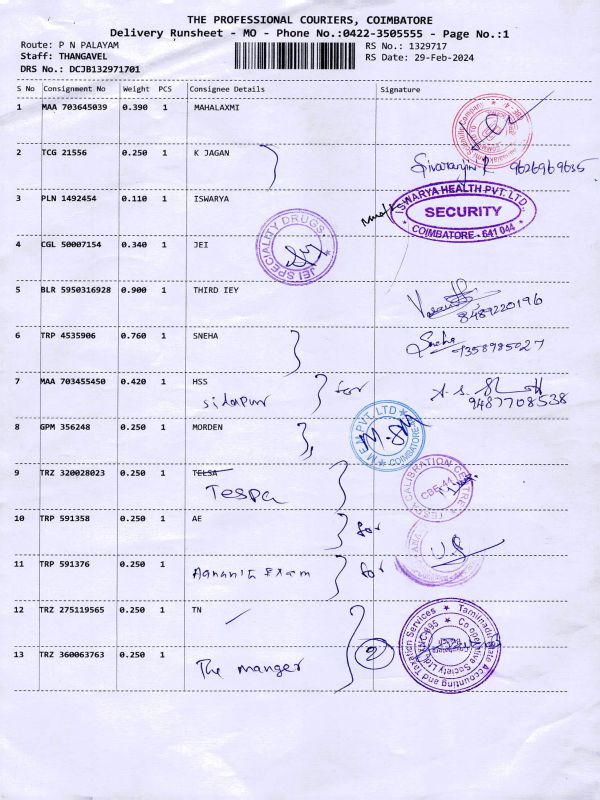 THE PROFESSIONAL COURIERS, COIMBATORE
Delivery Runsheet - MO - Phone No.:0422-3505555 - Page No.:1
Route: P N PALAYAM
RS No.: 1329717
Staff: THANGAVEL
RS Date: 29-Feb-2024
DRS No.: DCJB132971701
S No Consignment No Weight PCS Consignee Details Signature
1 MAA 703645039 0.390 1 MAHALAXMI
2 TCG 21556 0.250 1 K JAGAN
Sivaranjini R 9626969635
3 PLN 1492454 0.110 1 ISWARYA
ISWARYA HEALTH PVT. LTD.
SECURITY
COIMBATORE - 641 044
4 CGL 50007154 0.340 1 JEI
JEI SPECIALITY DRUGS
5 BLR 5950316928 0.900 1 THIRD IEY
8489220196
6 TRP 4535906 0.760 1 SNEHA
Sneha
9358985027
7 MAA 703455450 0.420 1 HSS
for
9487708538
8 GPM 356248 0.250 1 MORDEN
M E M PVT. LTD
COIMBATORE
9 TRZ 320028023 0.250 1 TELSA
Tespa
TESPA CALIBRATION CENTRE
CBE-44
10 TRP 591358 0.250 1 AE
for
11 TRP 591376 0.250 1
Exam
for
12 TRZ 275119565 0.250 1 TN
2
Tamilnadu State Accounting and Taxation Services
Co operative Society Ltd
13 TRZ 360063763 0.250 1
The manger